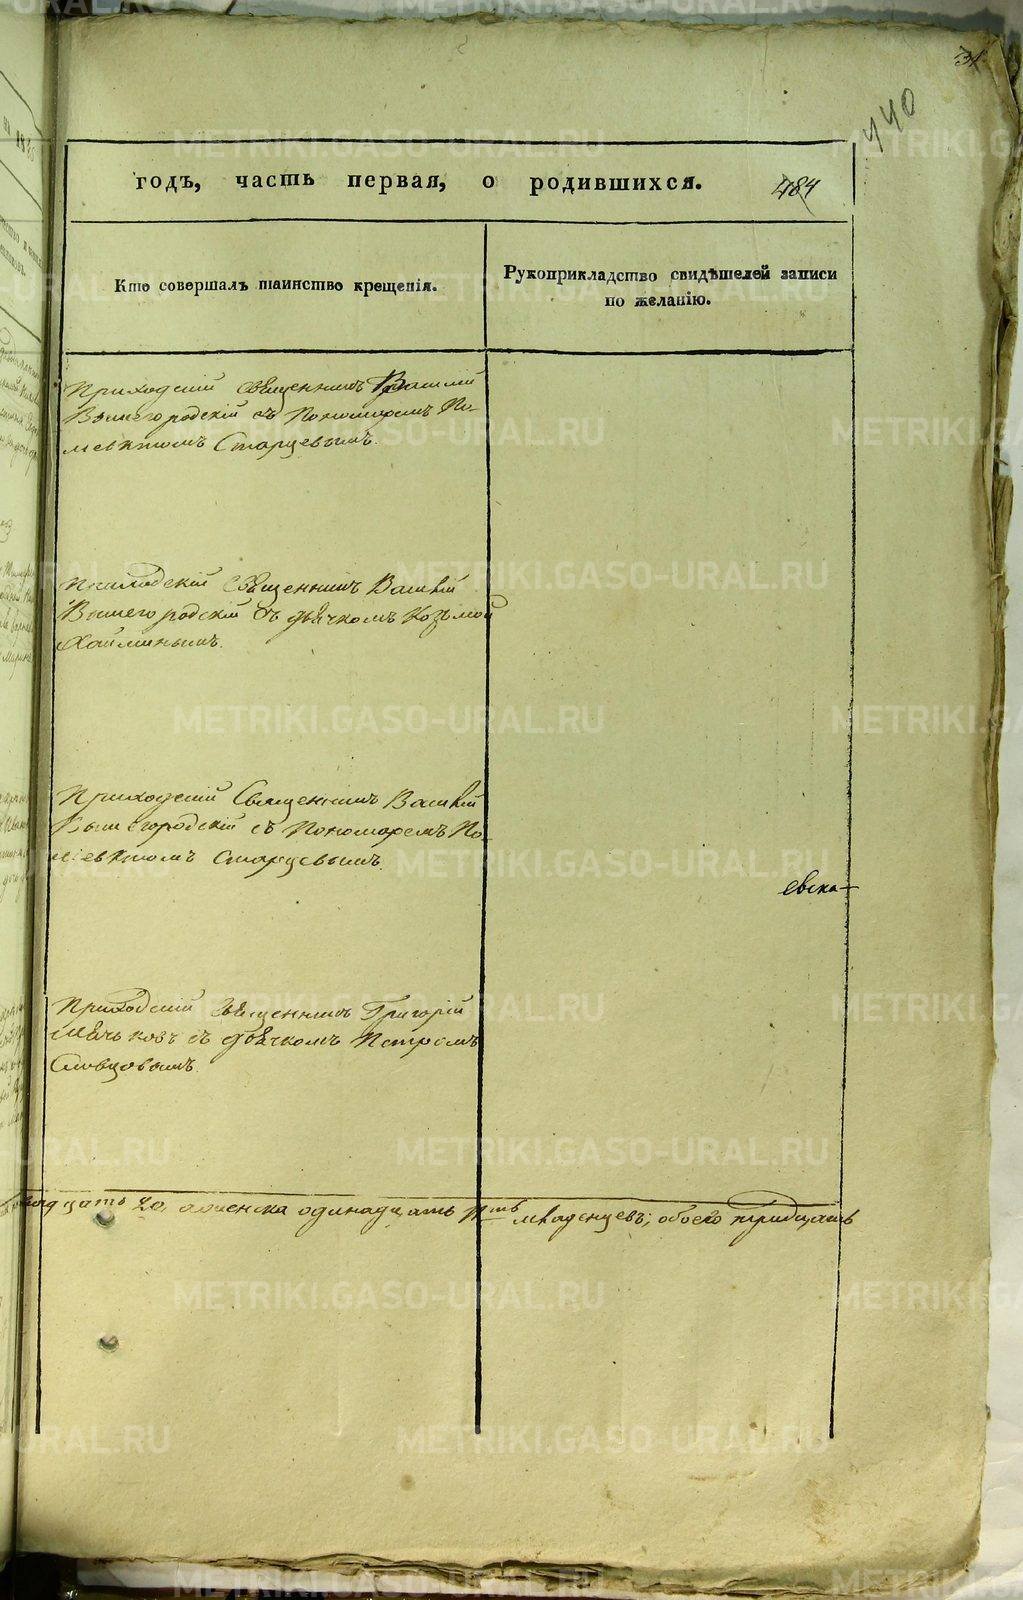 31
440
годъ, часть первая, о родившихся. 484
Кто совершалъ таинство крещенія.
Рукоприкладство свидѣтелей записи
по желанію.
Приходскій священникъ Василій
Вышегородскій съ Пономаремъ По-
лиевктомъ Старцевымъ.
Приходскій Священникъ Василій
Вышегородскій съ дьячкомъ Козьмой
Хайминымъ.
Приходскій Священникъ Василій
Вышегородскій съ Пономаремъ По-
лиевктомъ Старцевымъ.
евска
Приходскій Священникъ Григорій
съ дьячкомъ Петромъ
Словцовымъ.
20, а женска одинадцать младенцевъ; обоего тридцать
METRIKI.GASO-URAL.RU